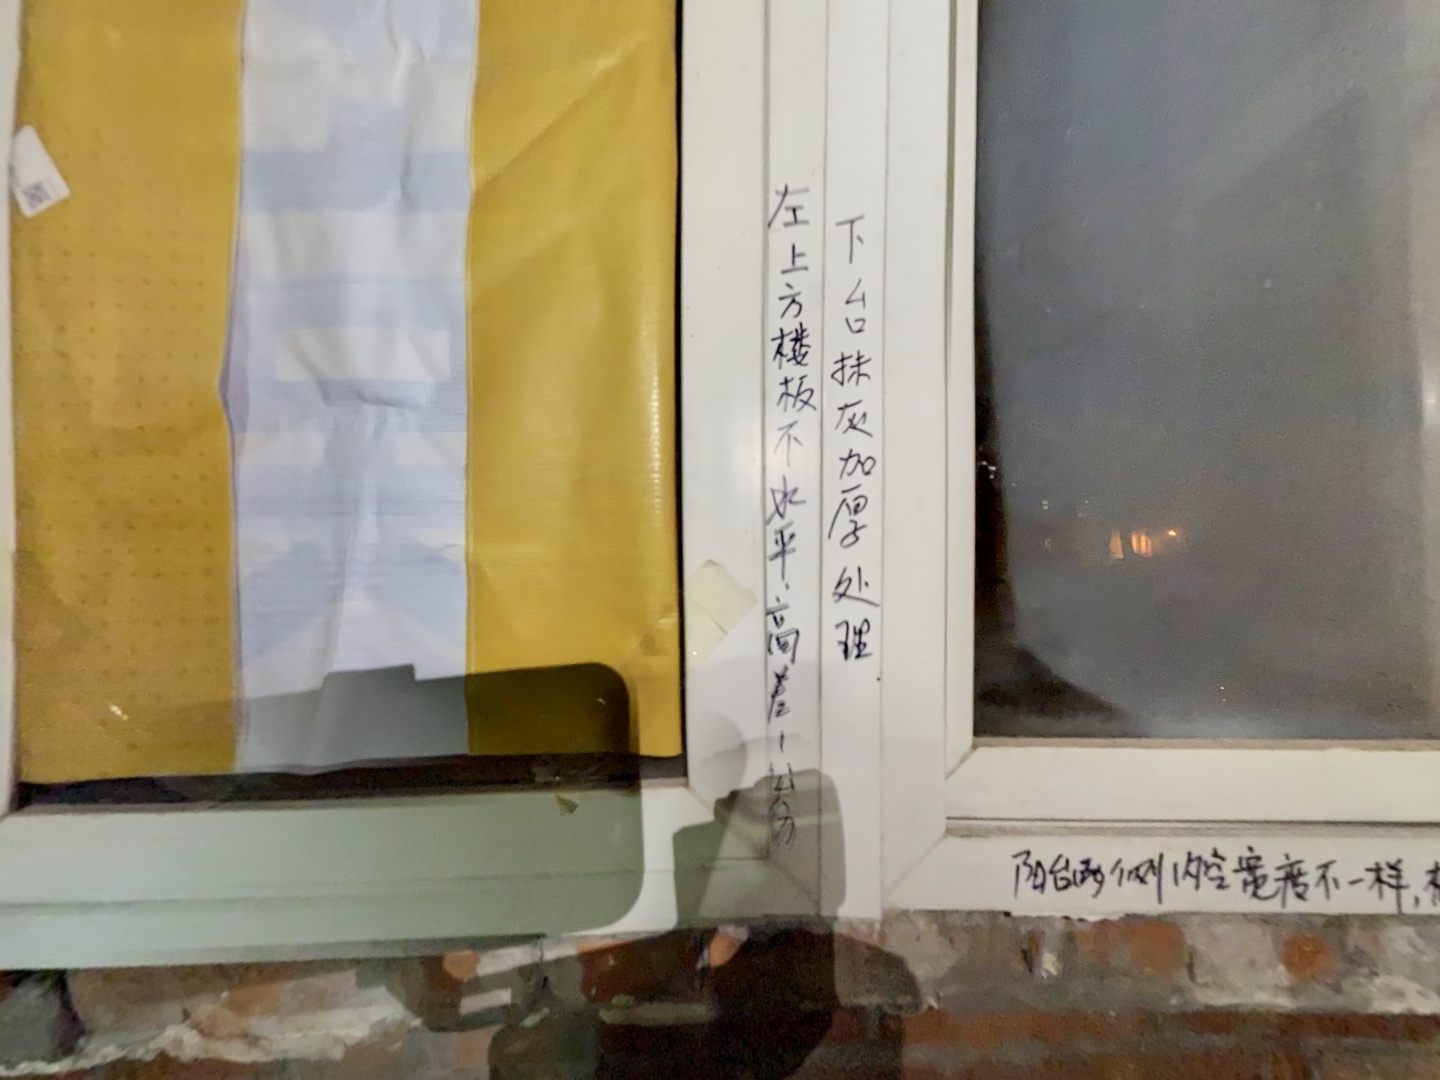 左上方楼板不水平，高差1公分
下台抹灰加厚处理
阳台两侧内空宽度不一样，